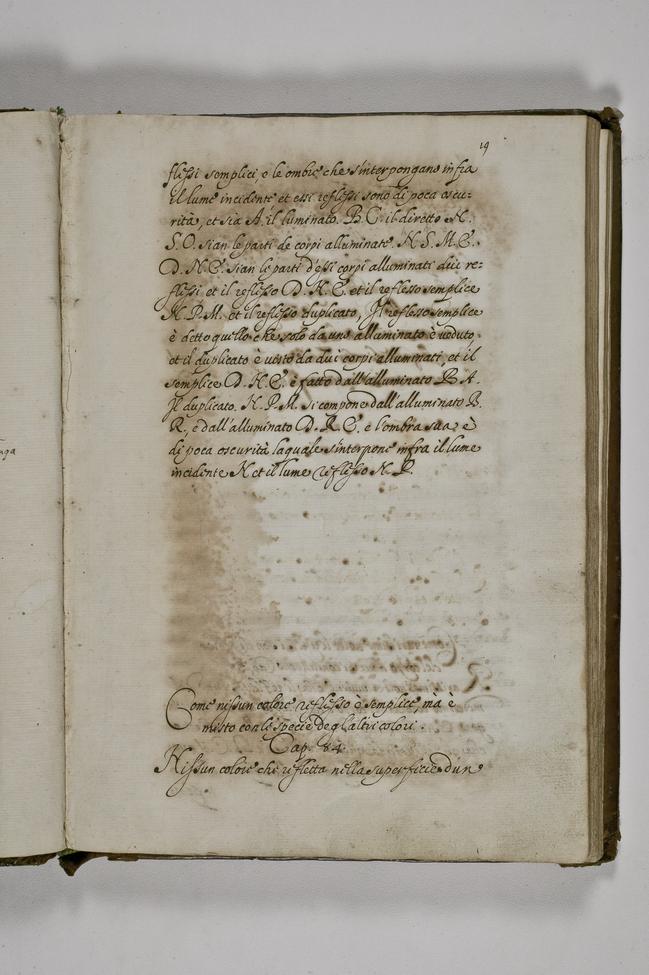 19
flessi semplici, e le ombre che s'interpongano infra
il lume incidente et essi reflessi sono di poca oscu-
rità, et sia A. il luminato. B. C. il diretto N.
S. O. sian le parti de corpi alluminate. N. S. M. E.
D. N. E. sian le parti d'essi corpi alluminati dai re-
flessi et il reflesso D. N. E. et il reflesso semplice
N. P. M. et il reflesso duplicato, Il reflesso semplice
è detto quello che solo da uno alluminato è veduto,
et il duplicato è visto da dui corpi alluminati, et il
semplice D. N. E. è fatto dall'alluminato B. A.
Il duplicato. N. P. M. si compone dall'alluminato B.
R. e dall'alluminato D. R. E. e l'ombra sua, è
di poca oscurità laquale s'interpone infra il lume
incidente N et il lume reflesso N. P.
Come nissun colore reflesso è semplice, mà è
misto con le specie degl'altri colori.
Cap. 84.
Nissun colore che refletta nella superficie d'un